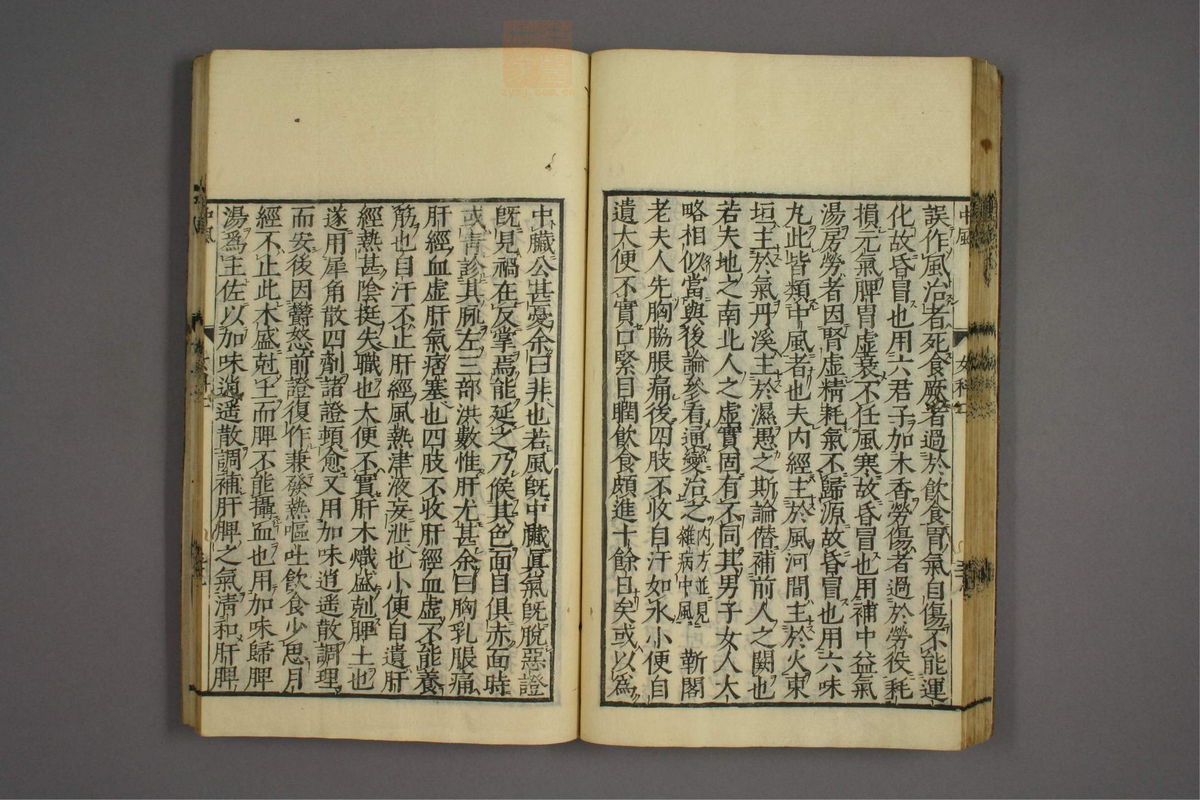 誤作風治者死食厥者過於飮食胃氣自傷不能運
化故昏冒也用六君子加木香勞傷者過於勞役耗
損元氣脾胃虛衰不任風寒故昏冒也用補中益氣
湯房勞者因腎虛精耗氣不歸源故昏冒也用六味
丸此皆類中風者也夫内經主於風河間主於火東
垣主於氣丹溪主於濕愚之斯論僣補前人之闕也
若夫地之南北人之虛實固有不同其男子女人大
略相似當與後論參看通變治之 内方並見雜病中風 靳閣
老夫人先胸脇脹痛後四肢不收自汗如水小便自
遺大便不實口緊目瞤飮食頗進十餘日矣或以爲
中臟公甚憂余曰非也若風旣中臟眞氣旣脫惡證
旣見禍在反掌焉能延之乃候其色面目俱赤面時
或靑診其脈左三部洪數惟肝尤甚余曰胸乳脹痛
肝經血虛肝氣痞塞也四肢不收肝經血虛不能養
筋也自汗不止肝經風熱津液妄泄也小便自遺肝
經熱甚陰挺失職也大便不實肝木熾盛剋脾土也
遂用犀角散四劑諸證頓愈又用加味逍遥散調理
而安後因鬱怒前證復作兼發熱嘔吐飮食少思月
經不止此木盛剋土而脾不能攝血也用加味歸脾
湯爲主佐以加味逍遥散調補肝脾之氣淸和肝脾
中風
女科
中風